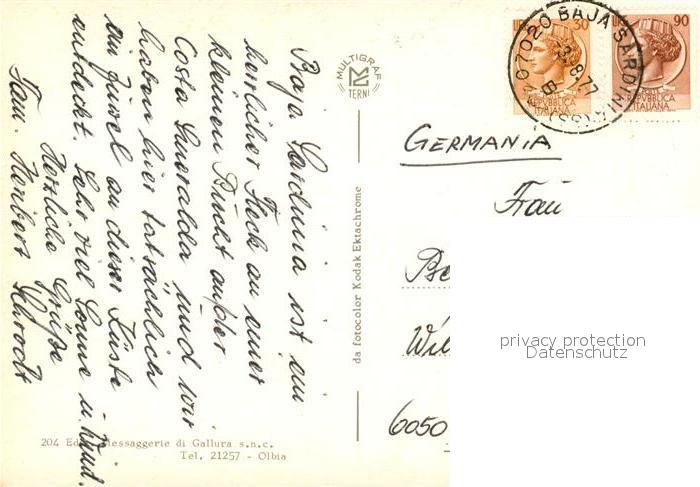 Baja Sardinia ist ein
herrlicher Fleck an einer
kleinen Bucht an der
Costa Smeralda und wir
haben hier tatsächlich
ein Juwel an dieser Küste
entdeckt. Sehr viel Sonne u. Wind.
Herzliche Grüße
Fam. Heribert Schrodt
MULTIGRAF
TERNI
da fotocolor Kodak Ektachrome
204 Ed. Messaggerie di Gallura s.n.c.
Tel. 21257 - Olbia
30
POSTE
REPVBBLICA
ITALIANA
90
POSTE
REPVBBLICA
ITALIANA
07020 BAJA SARDINIA
3.8.77
GERMANIA
Frau
Be
Wil
6050
privacy protection
Datenschutz